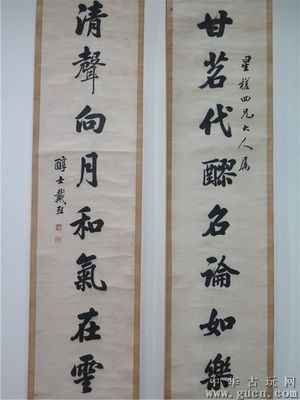 星槎四兄大人属
甘茗代醪名論如樂
清聲向月和氣在雲
醇士戴熙
中华古玩网
www.gucn.com